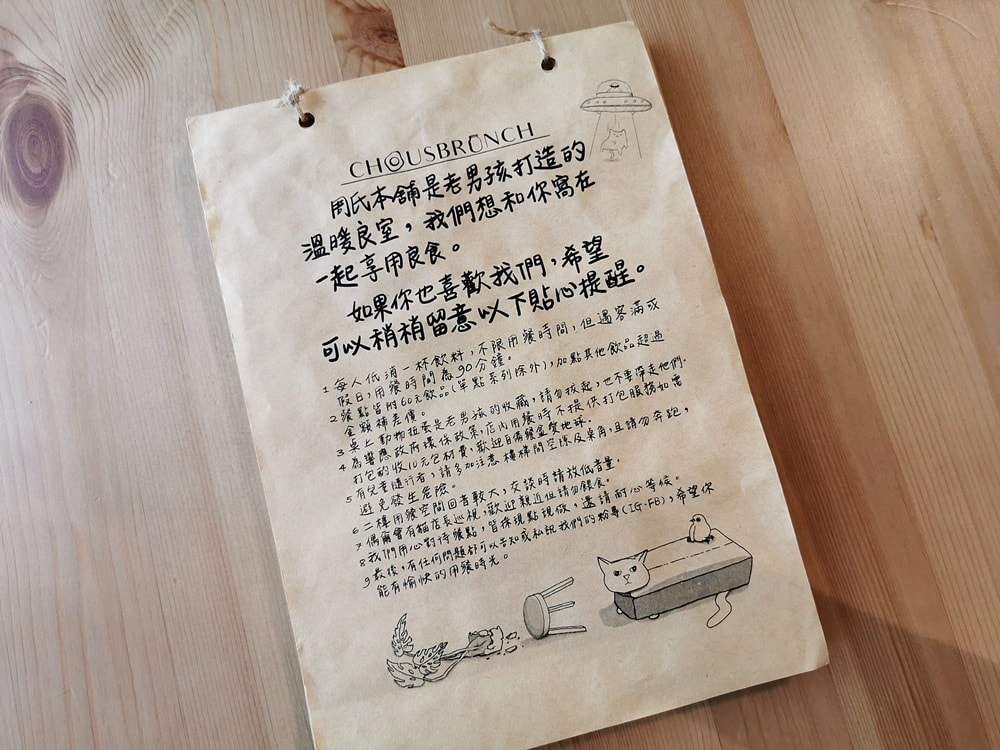 CHOUSBRUNCH
周氏本舖是老男孩打造的
溫暖良室，我們想和你窩在
一起享用良食。
如果你也喜歡我們，希望
可以稍稍留意以下貼心提醒。
1 每人低消一杯飲料，不限用餐時間，但遇客滿或
假日，用餐時間為90分鐘。
2 餐點皆附60元飲品(單點系列除外)，加點其他飲品超過
金額補差價。
3 桌上動物拉麥是老男孩的收藏，請勿拔起，也不要帶走他們。
4 為響應政府環保政策，店內用餐時不提供打包服務如需
打包酌收10元包材費，歡迎自備餐盒愛地球。
5 有兒童隨行者，請多加注意樓梯間空隙及桌角，且請勿奔跑，
避免發生危險。
6 二樓用餐空間回音較大，交談時請放低音量。
7 偶爾會有貓店長巡視，歡迎親近但請勿餵食。
8 我們用心對待餐點，皆採現點現做，還請耐心等候。
9 最後，有任何問題都可以告知或私訊我們的粉專(IG.FB)，希望你
能有愉快的用餐時光。